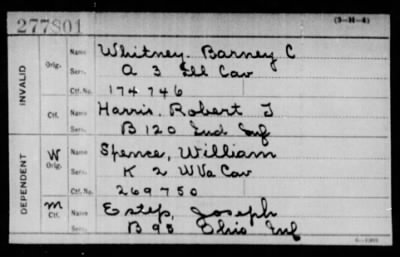 277801 (3-H-4)
INVALID Orig. Name Whitney. Barney C
Serv. A 3 Ill Cav
Ctf. No. 174746
Ctf. Name Harris. Robert T
Serv. B 120 Ind Inf
DEPENDENT W Orig. Name Spence, William
Serv. K 2 WVa Cav
Ctf. No. 269750
m Ctf. Name Estep, Joseph
Serv. B 95 Ohio Inf